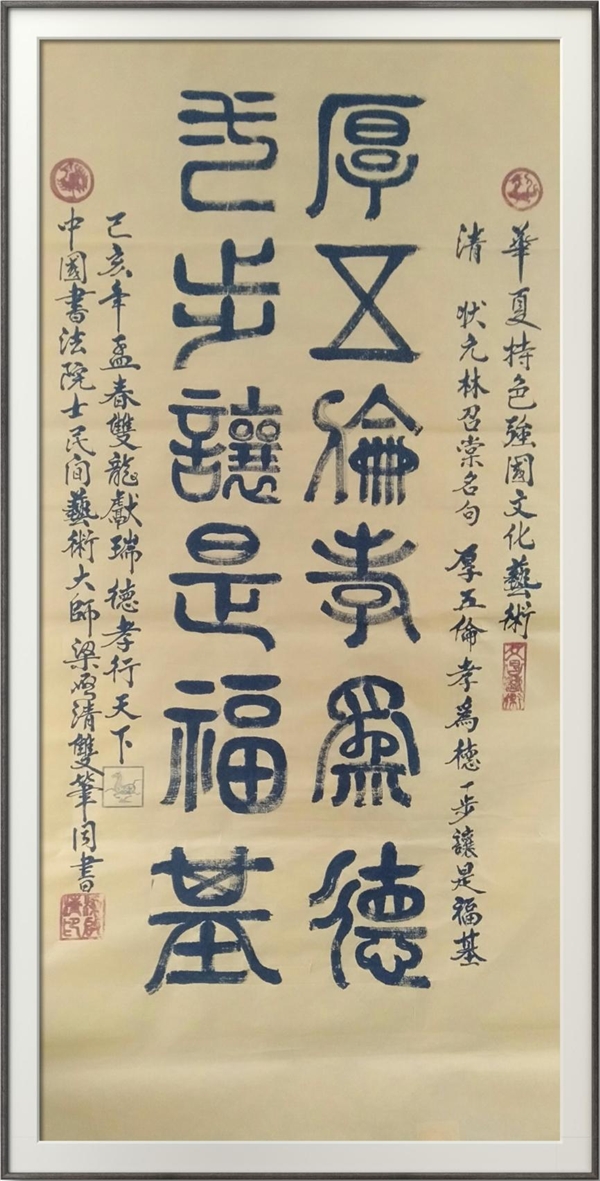 華夏特色強國文化藝術
清 狀元林召棠名句 厚五倫孝為德一步讓是福基
厚五倫孝為德
步讓是福基
己亥年孟春雙龍獻瑞德孝行天下
中國書法院士民间藝術大師梁啓清雙筆同書